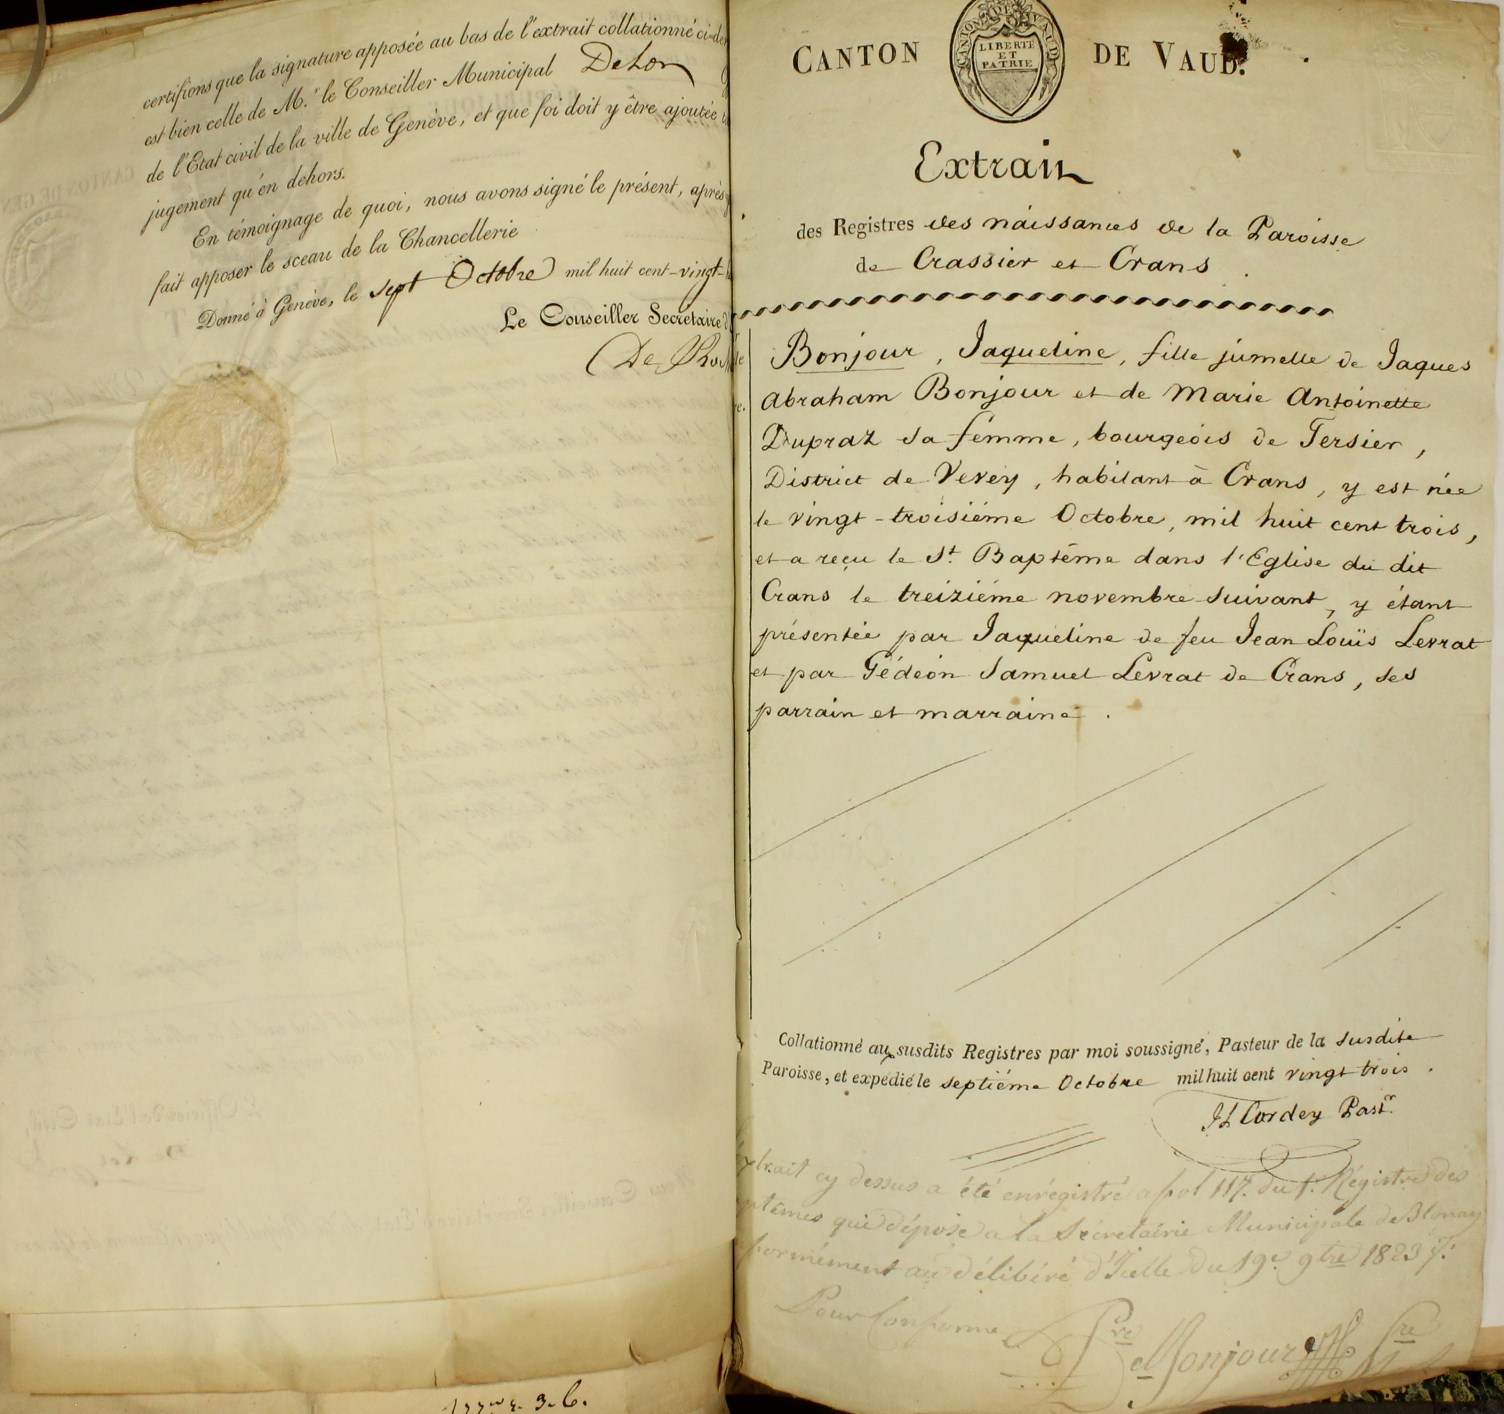 certifions que la signature apposée au bas de l'extrait collationné
est bien celle de M.r le Conseiller Municipal Dehor
de l'Etat civil de la ville de Genève, et que foi doit y être ajoutée
jugement qu'en dehors.
En témoignage de quoi, nous avons signé le présent, après
fait apposer le sceau de la Chancellerie
Donné à Genève, le sept Octobre mil huit cent-vingt-
Le Conseiller Secrétaire
De
CANTON DE VAUD.
CANTON DE VAUD
LIBERTÉ
ET
PATRIE
Extrait
des Registres des náissances de la Paroisse
de Crassier et Crans.
Bonjour, Jaqueline, fille jumelle de Jaques
Abraham Bonjour et de Marie Antoinette
Dupraz sa fémme, bourgeois de Tersier,
District de Vevey, habitant à Crans, y est née
le vingt-troisiéme Octobre, mil huit cent trois,
et a reçu le St. Baptéme dans l'Eglise du dit
Crans le treiziéme novembre suivant, y étant
présentée par Jaqueline de feu Jean Louïs Levrat
et par Gédéon Samuel Levrat de Crans, ses
parrain et marraine.
Collationné aux susdits Registres par moi soussigné, Pasteur de la susdite
Paroisse, et expédié le septiéme Octobre mil huit cent vingt trois.
JL Cordey Pastr.
cy dessus a été enrégistré a fol 117. du 1r. Régistre des
qui dépose a la Sécretairie Municipale de Blonay
au délibéré d'Icelle du 19e. 9bre 1823
Pour Conforme
Bonjour